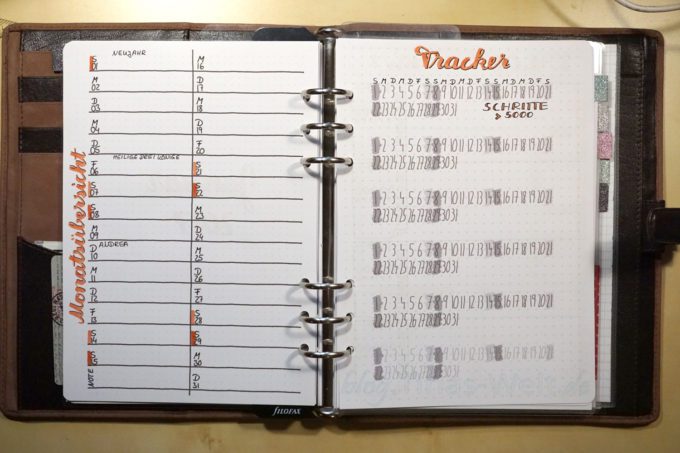 Monatsübersicht
NEUJAHR
S 01
M 02
D 03
M 04
D 05
HEILIGE DREI KÖNIGE
F 06
S 07
S 08
M 09
ANDREA
D 10
M 11
D 12
F 13
S 14
S 15
NOTE
M 16
D 17
M 18
D 19
F 20
S 21
S 22
M 23
D 24
M 25
D 26
F 27
S 28
S 29
M 30
D 31
FILOFAX
Tracker
S M D M D F S S M D M D F S S M D M D F S
1 2 3 4 5 6 7 8 9 10 11 12 13 14 15 16 17 18 19 20 21
22 23 24 25 26 27 28 29 30 31
SCHRITTE
> 5000
1 2 3 4 5 6 7 8 9 10 11 12 13 14 15 16 17 18 19 20 21
22 23 24 25 26 27 28 29 30 31
1 2 3 4 5 6 7 8 9 10 11 12 13 14 15 16 17 18 19 20 21
22 23 24 25 26 27 28 29 30 31
1 2 3 4 5 6 7 8 9 10 11 12 13 14 15 16 17 18 19 20 21
22 23 24 25 26 27 28 29 30 31
1 2 3 4 5 6 7 8 9 10 11 12 13 14 15 16 17 18 19 20 21
22 23 24 25 26 27 28 29 30 31
1 2 3 4 5 6 7 8 9 10 11 12 13 14 15 16 17 18 19 20 21
22 23 24 25 26 27 28 29 30 31